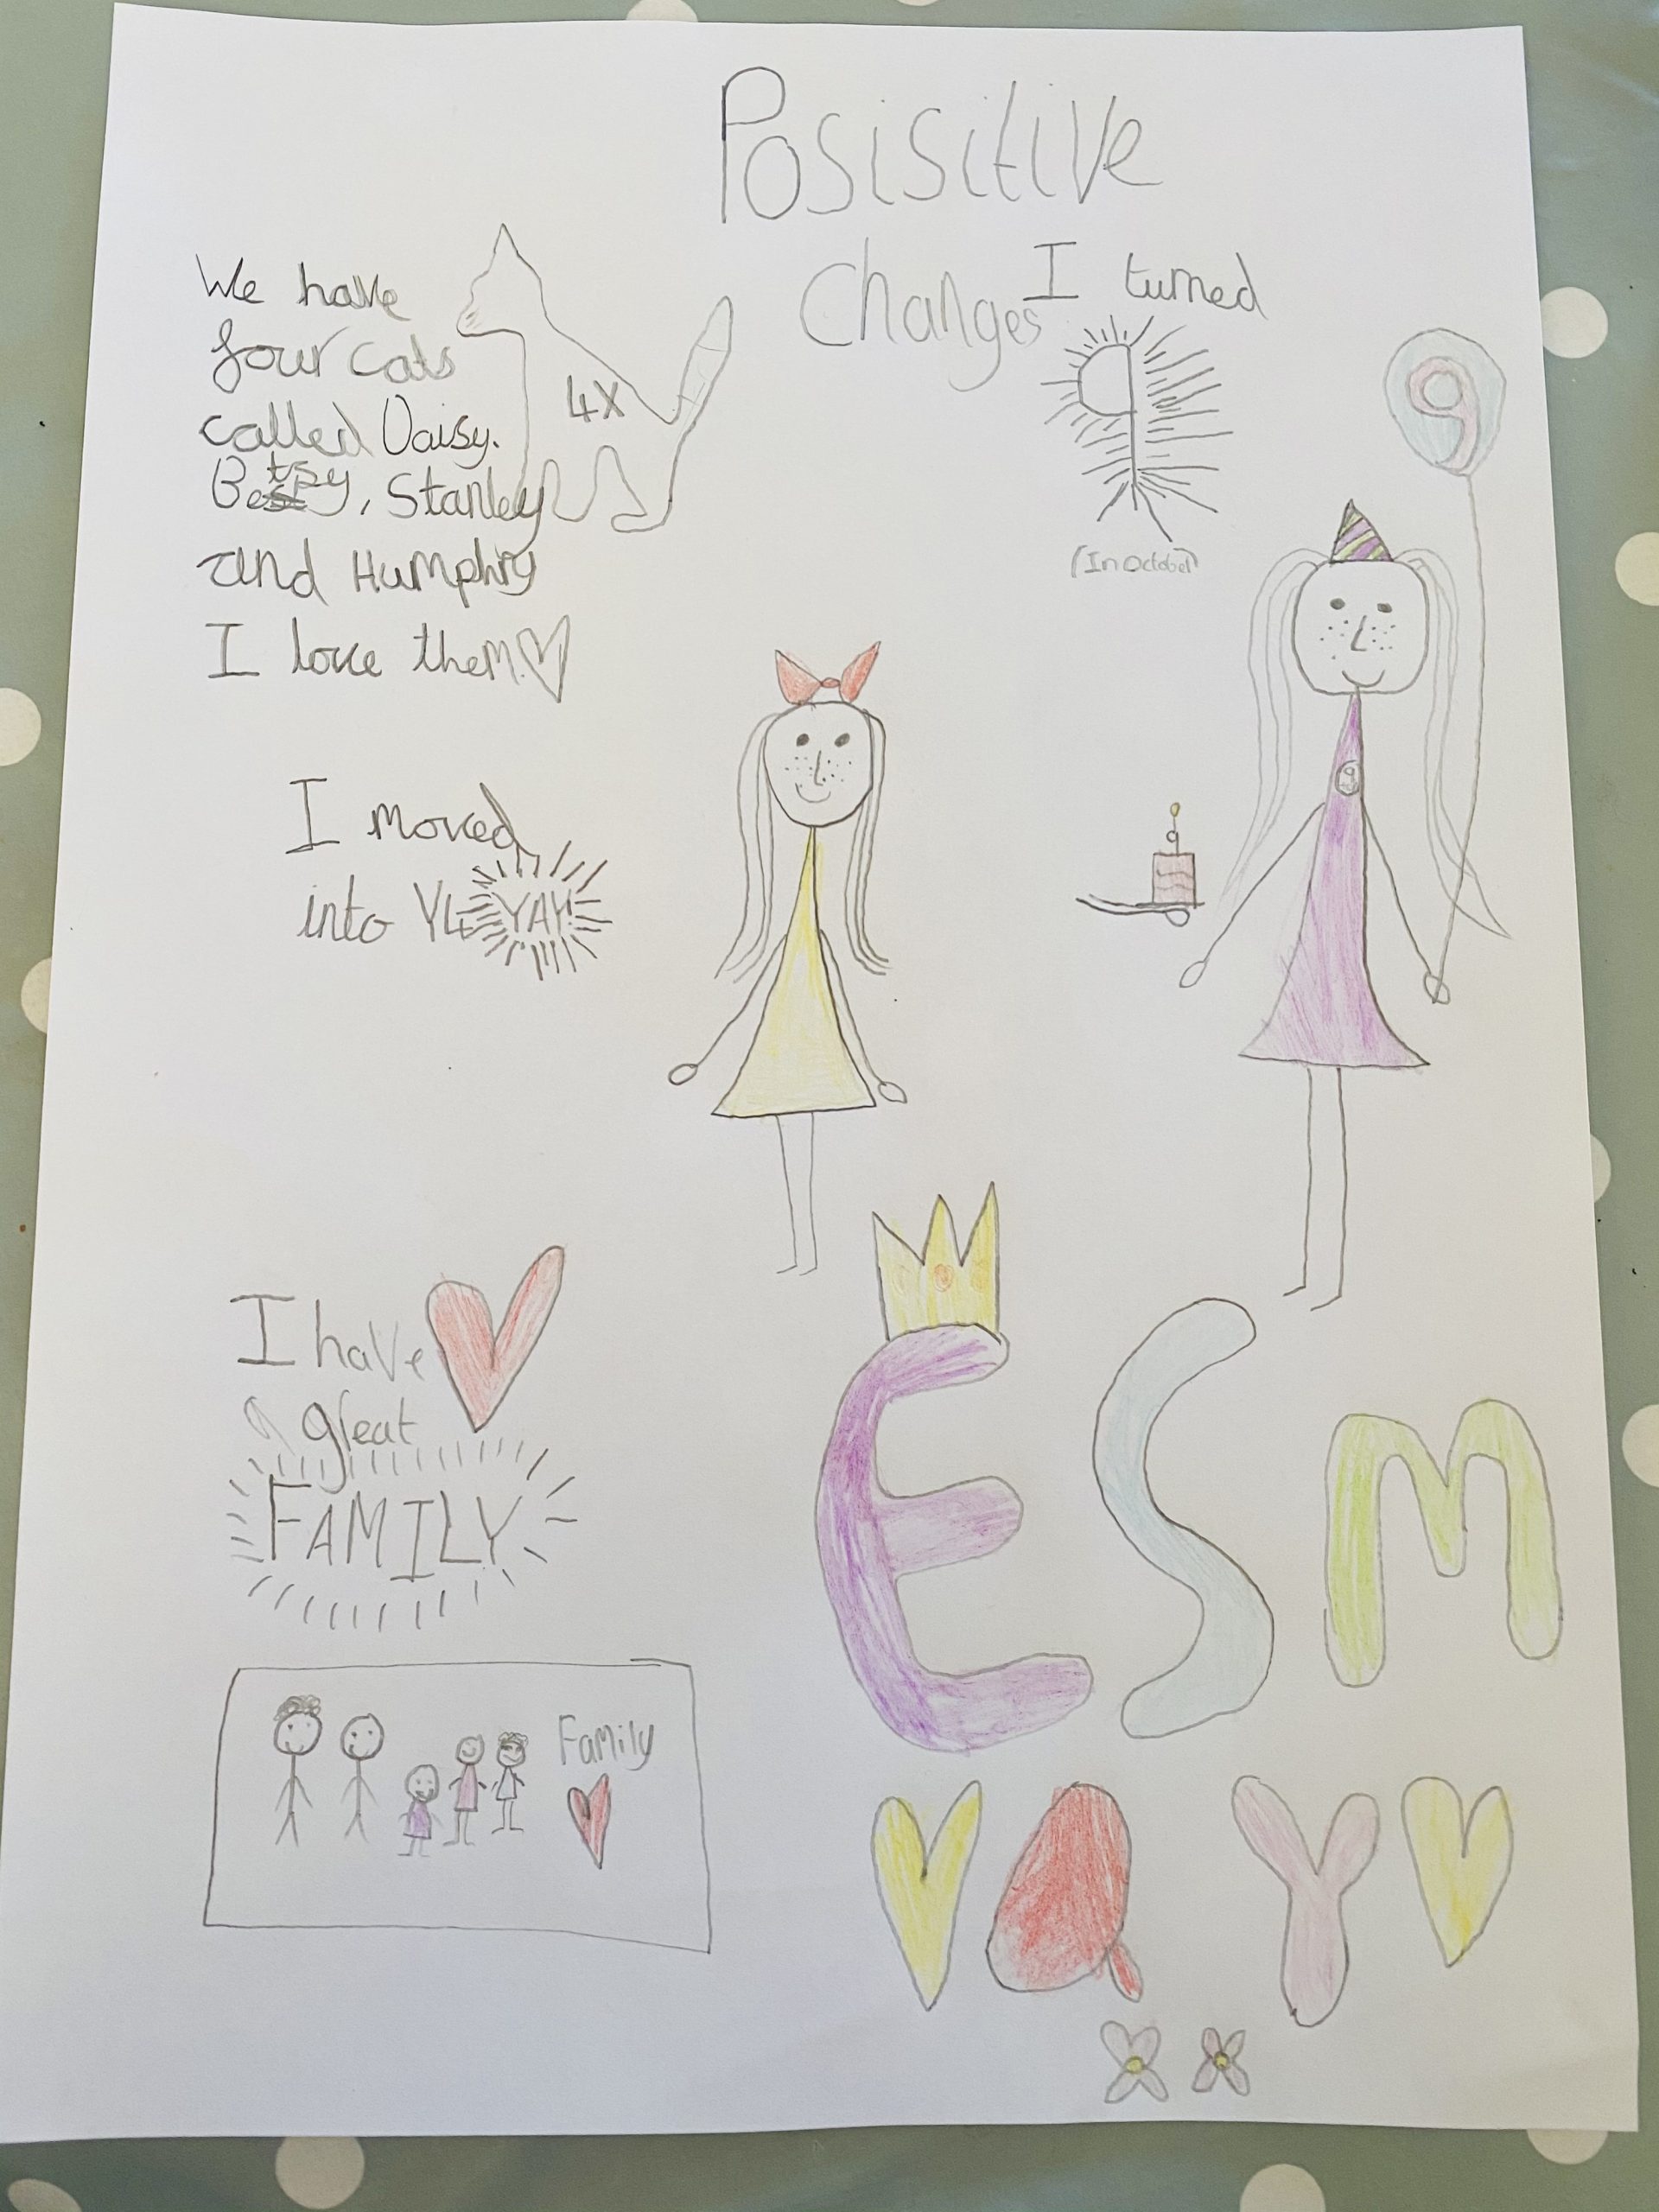 Posisitive
Changes
We have
four cats
called Daisy.
Betsy, Stanley
and Humphry
I love them
4X
I turned
9
(In October)
9
9
I moved
into Y4 YAY!
I have
a great
FAMILY
Family
ESM
aY